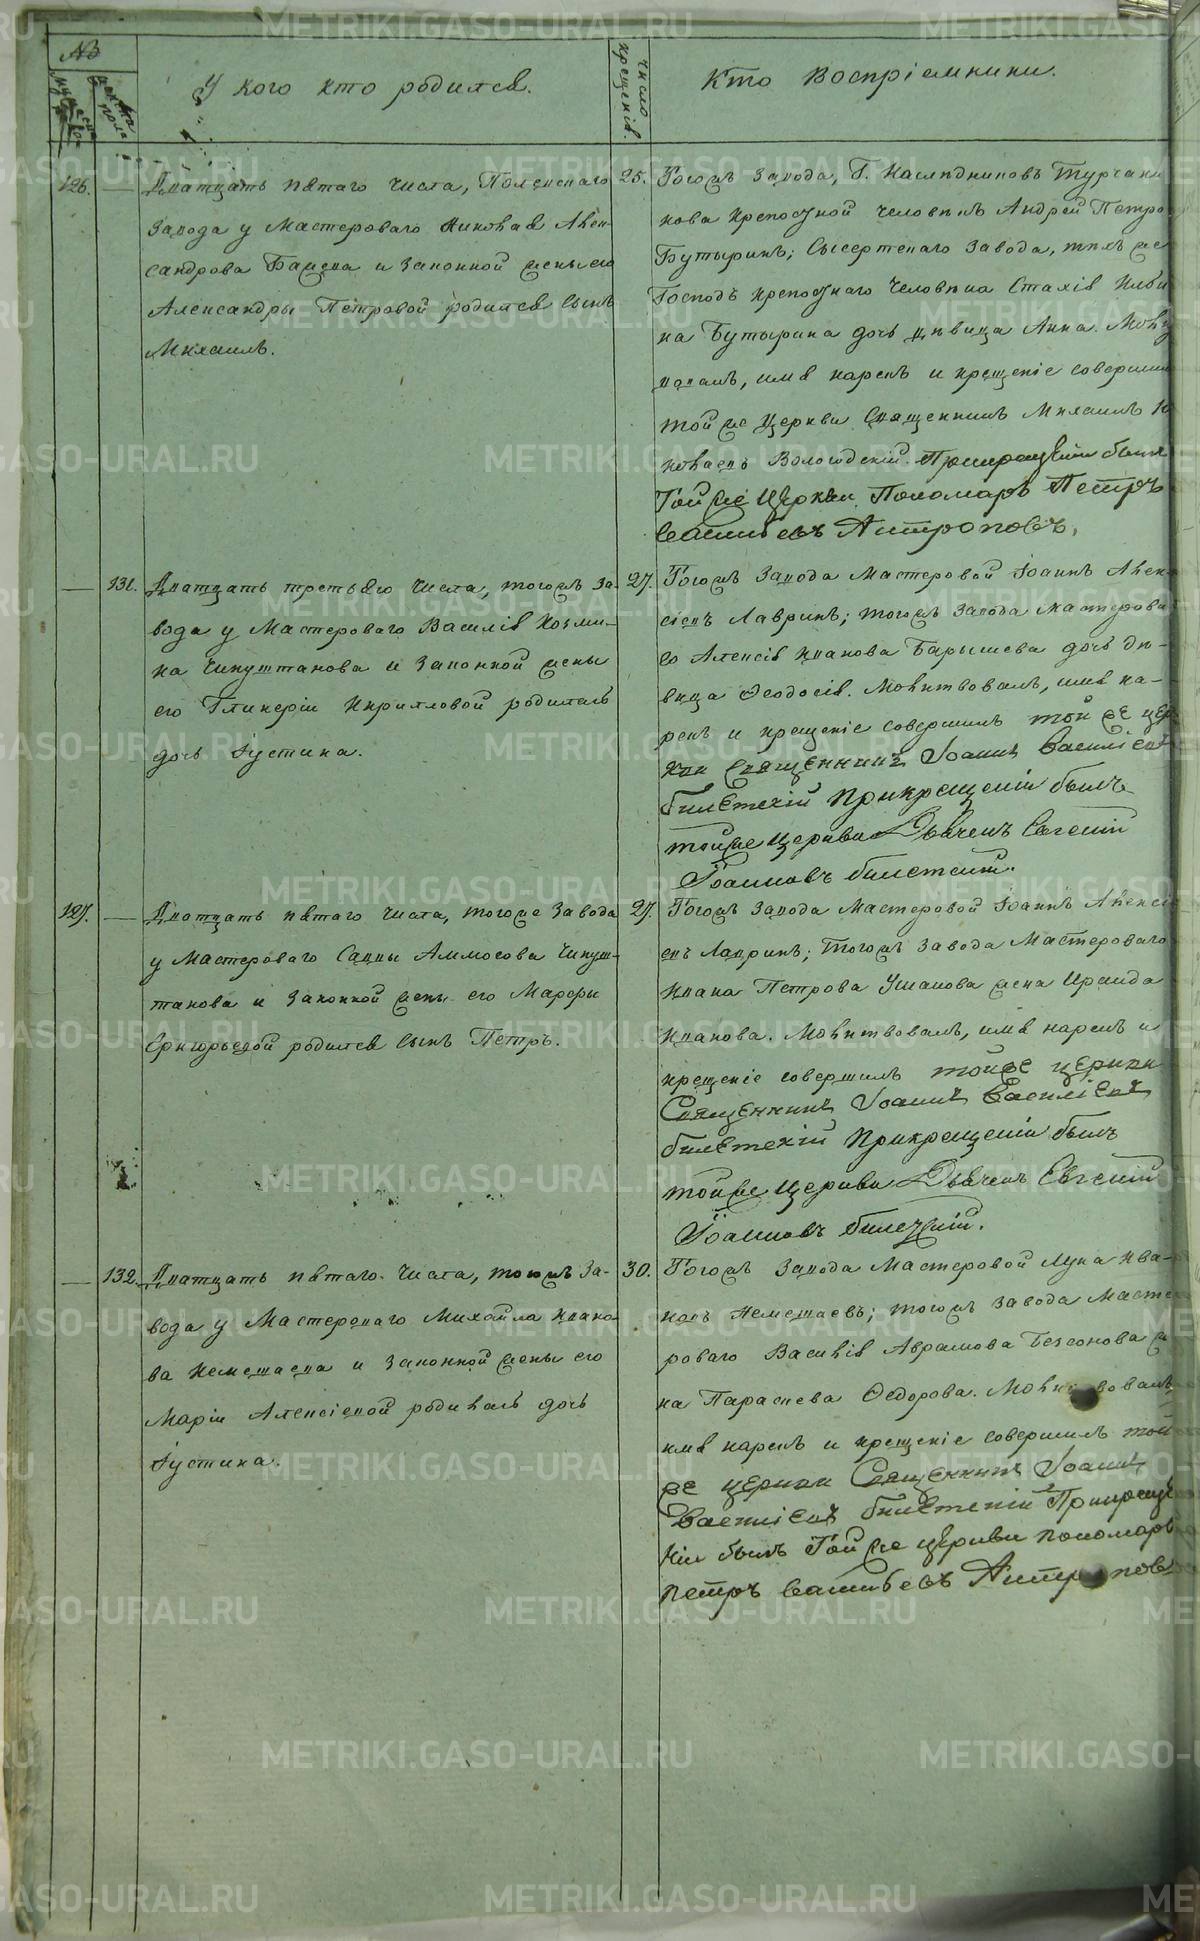 №
Мужеска
пола
Женска
пола
У кого кто родился.
Число
крещенія.
Кто Воспріемники.
126.
—
Дватцать пятаго Числа, Полевскаго
Завода у Мастероваго Николая Алек-
сандрова Баи и Законной жены его
Александры Петровой родился Сынъ
Михаилъ.
25.
Тогожъ Завода, Г. Наслѣдниковъ Турчани
нова крепосной человѣкъ Андрей Петро
Бутыринъ; Сысертскаго Завода, тѣхъ же
Господъ крепоснаго Человѣка
на Бутырина дочь дѣвица Анна. Молит
вовалъ, имя нарекъ и крещеніе совершилъ
той же Церкви Священникъ Михаилъ Н
колаевъ Вологодскій. Прикрещеніи былъ
Той же Церкви Пономарь Петръ
Васильевъ Антроповъ.
—
131.
Дватцать третьяго Числа, тогожъ За-
вода у Мастероваго Василія Козми-
на Чипуштанова и Законной жены
его Гликеріи Кириловой родилась
дочь Іустина.
27.
Тогожъ Завода Мастеровой Іоаннъ Алек-
сіевъ Лавринъ; тогожъ Завода Мастерова
го Алексія Иванова Барышева дочь дѣ-
вица Ѳеодосія. Молитвовалъ, имя на-
рекъ и крещеніе совершилъ той же цер
кви Священникъ Іоаннъ Василіевъ
Билетскій Прикрещеніи былъ
тойже Церкви Дьячекъ Евгеній
Іоанновъ Билетскій.
127.
—
Дватцать пятаго Числа, того же Завода
у Мастероваго Саввы Аммосова Чипуш-
танова и Законной жены его Марѳы
Григорьевой родился Сынъ Петръ.
27.
Тогожъ Завода Мастеровой Іоаннъ Алексі
евъ Лавринъ; Тогожъ Завода Мастероваго
Ивана Петрова Ушакова жена Ираида
Иванова. Молитвовалъ, имя нарекъ и
крещеніе совершилъ тойже церкви
Священникъ Іоаннъ Василіевъ
Билетскій Прикрещеніи былъ
тойже Церкви Дьячекъ Евгеній
Іоанновъ Билетскій.
—
132.
Дватцать пятаго Числа, тогожъ За-
вода у Мастероваго Михайла Ивано-
ва Кемешаева и Законной жены его
Маріи Алексіевой родилась дочь
Іустина.
30.
Тогожъ Завода Мастеровой Лука Ива-
новъ Кемешаевъ; тогожъ Завода Масте
роваго Василія Аврамова Безсонова же
на Параскева Ѳедорова. Молитвовалъ
имя нарекъ и крещеніе совершилъ той
же церкви Священникъ Іоаннъ
Василіевъ Билетскій Прикреще
ніи былъ Той же церкви пономарь
Петръ Васильевъ Антроповъ
METRIKI.GASO-URAL.RU